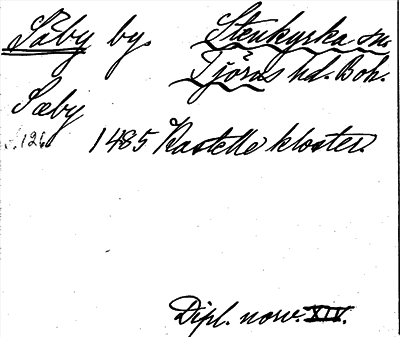 Säby by. Stenkyrka sn.
Tjörns hd. Boh.
Sæby
s. 126. 1485 Kastelle kloster.
Dipl. norv. XIV.